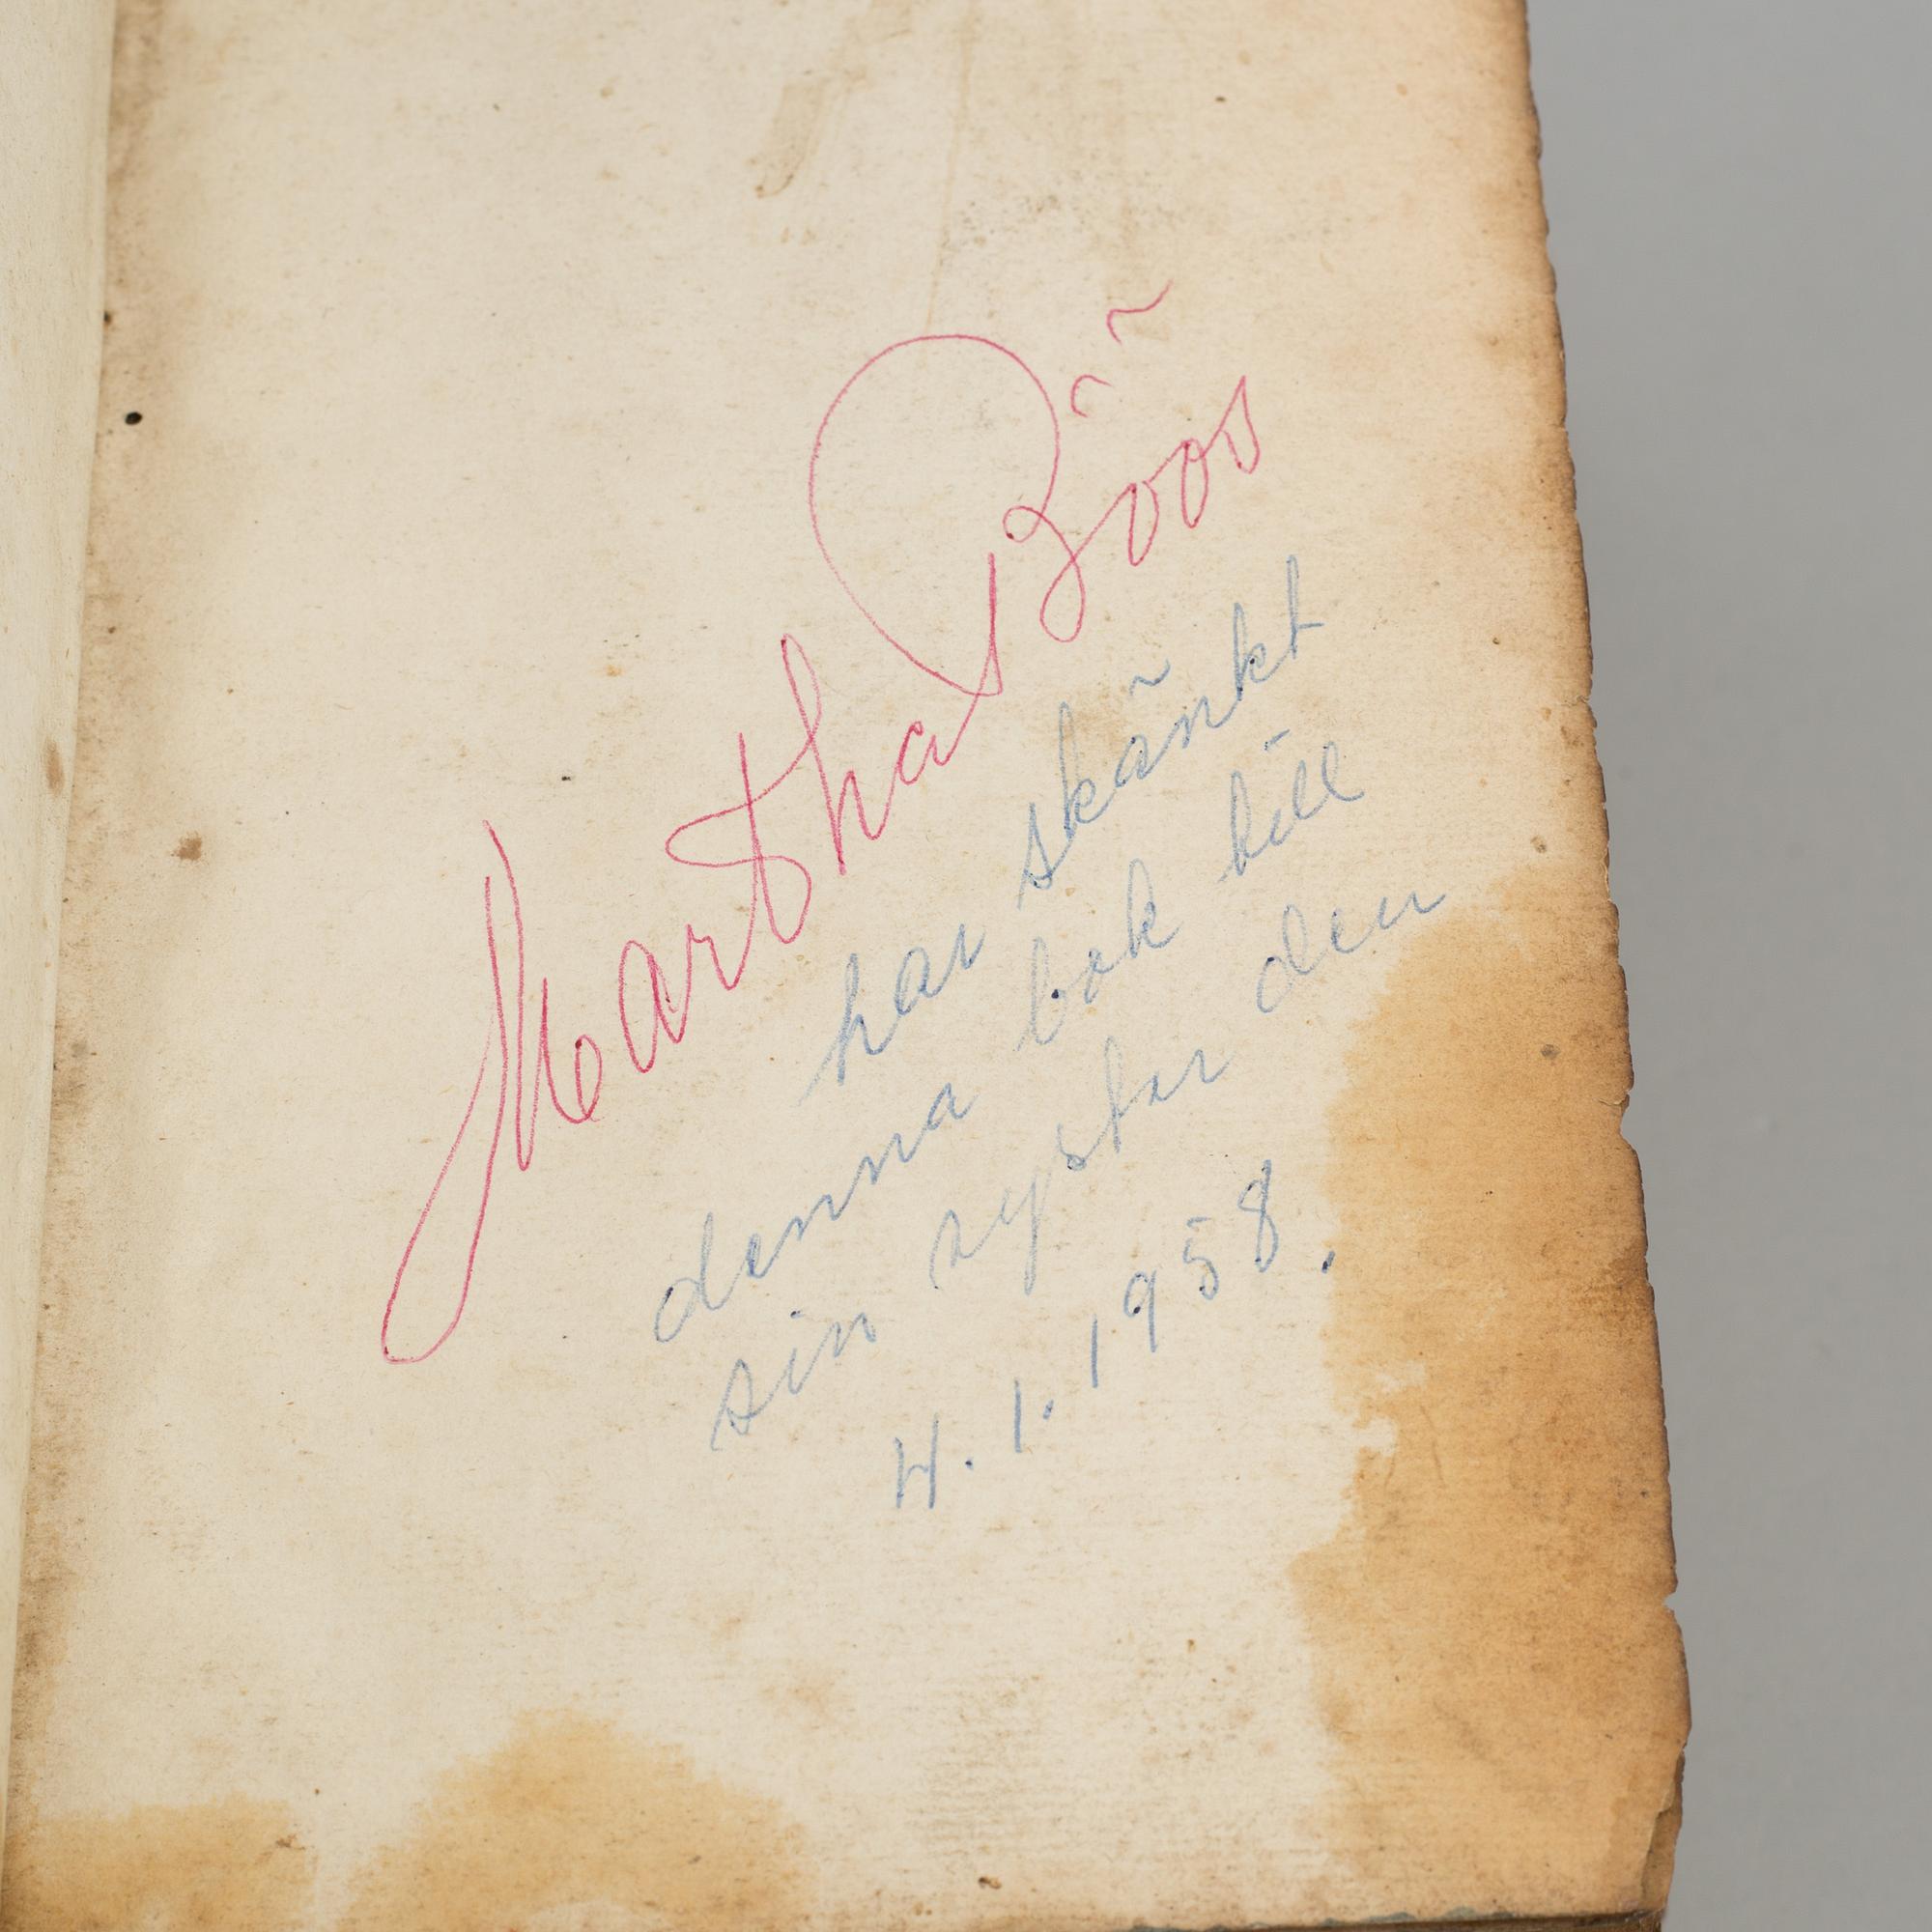 Martha Böös
har skänkt
denna bok till
sin syster den
4.1.1958.